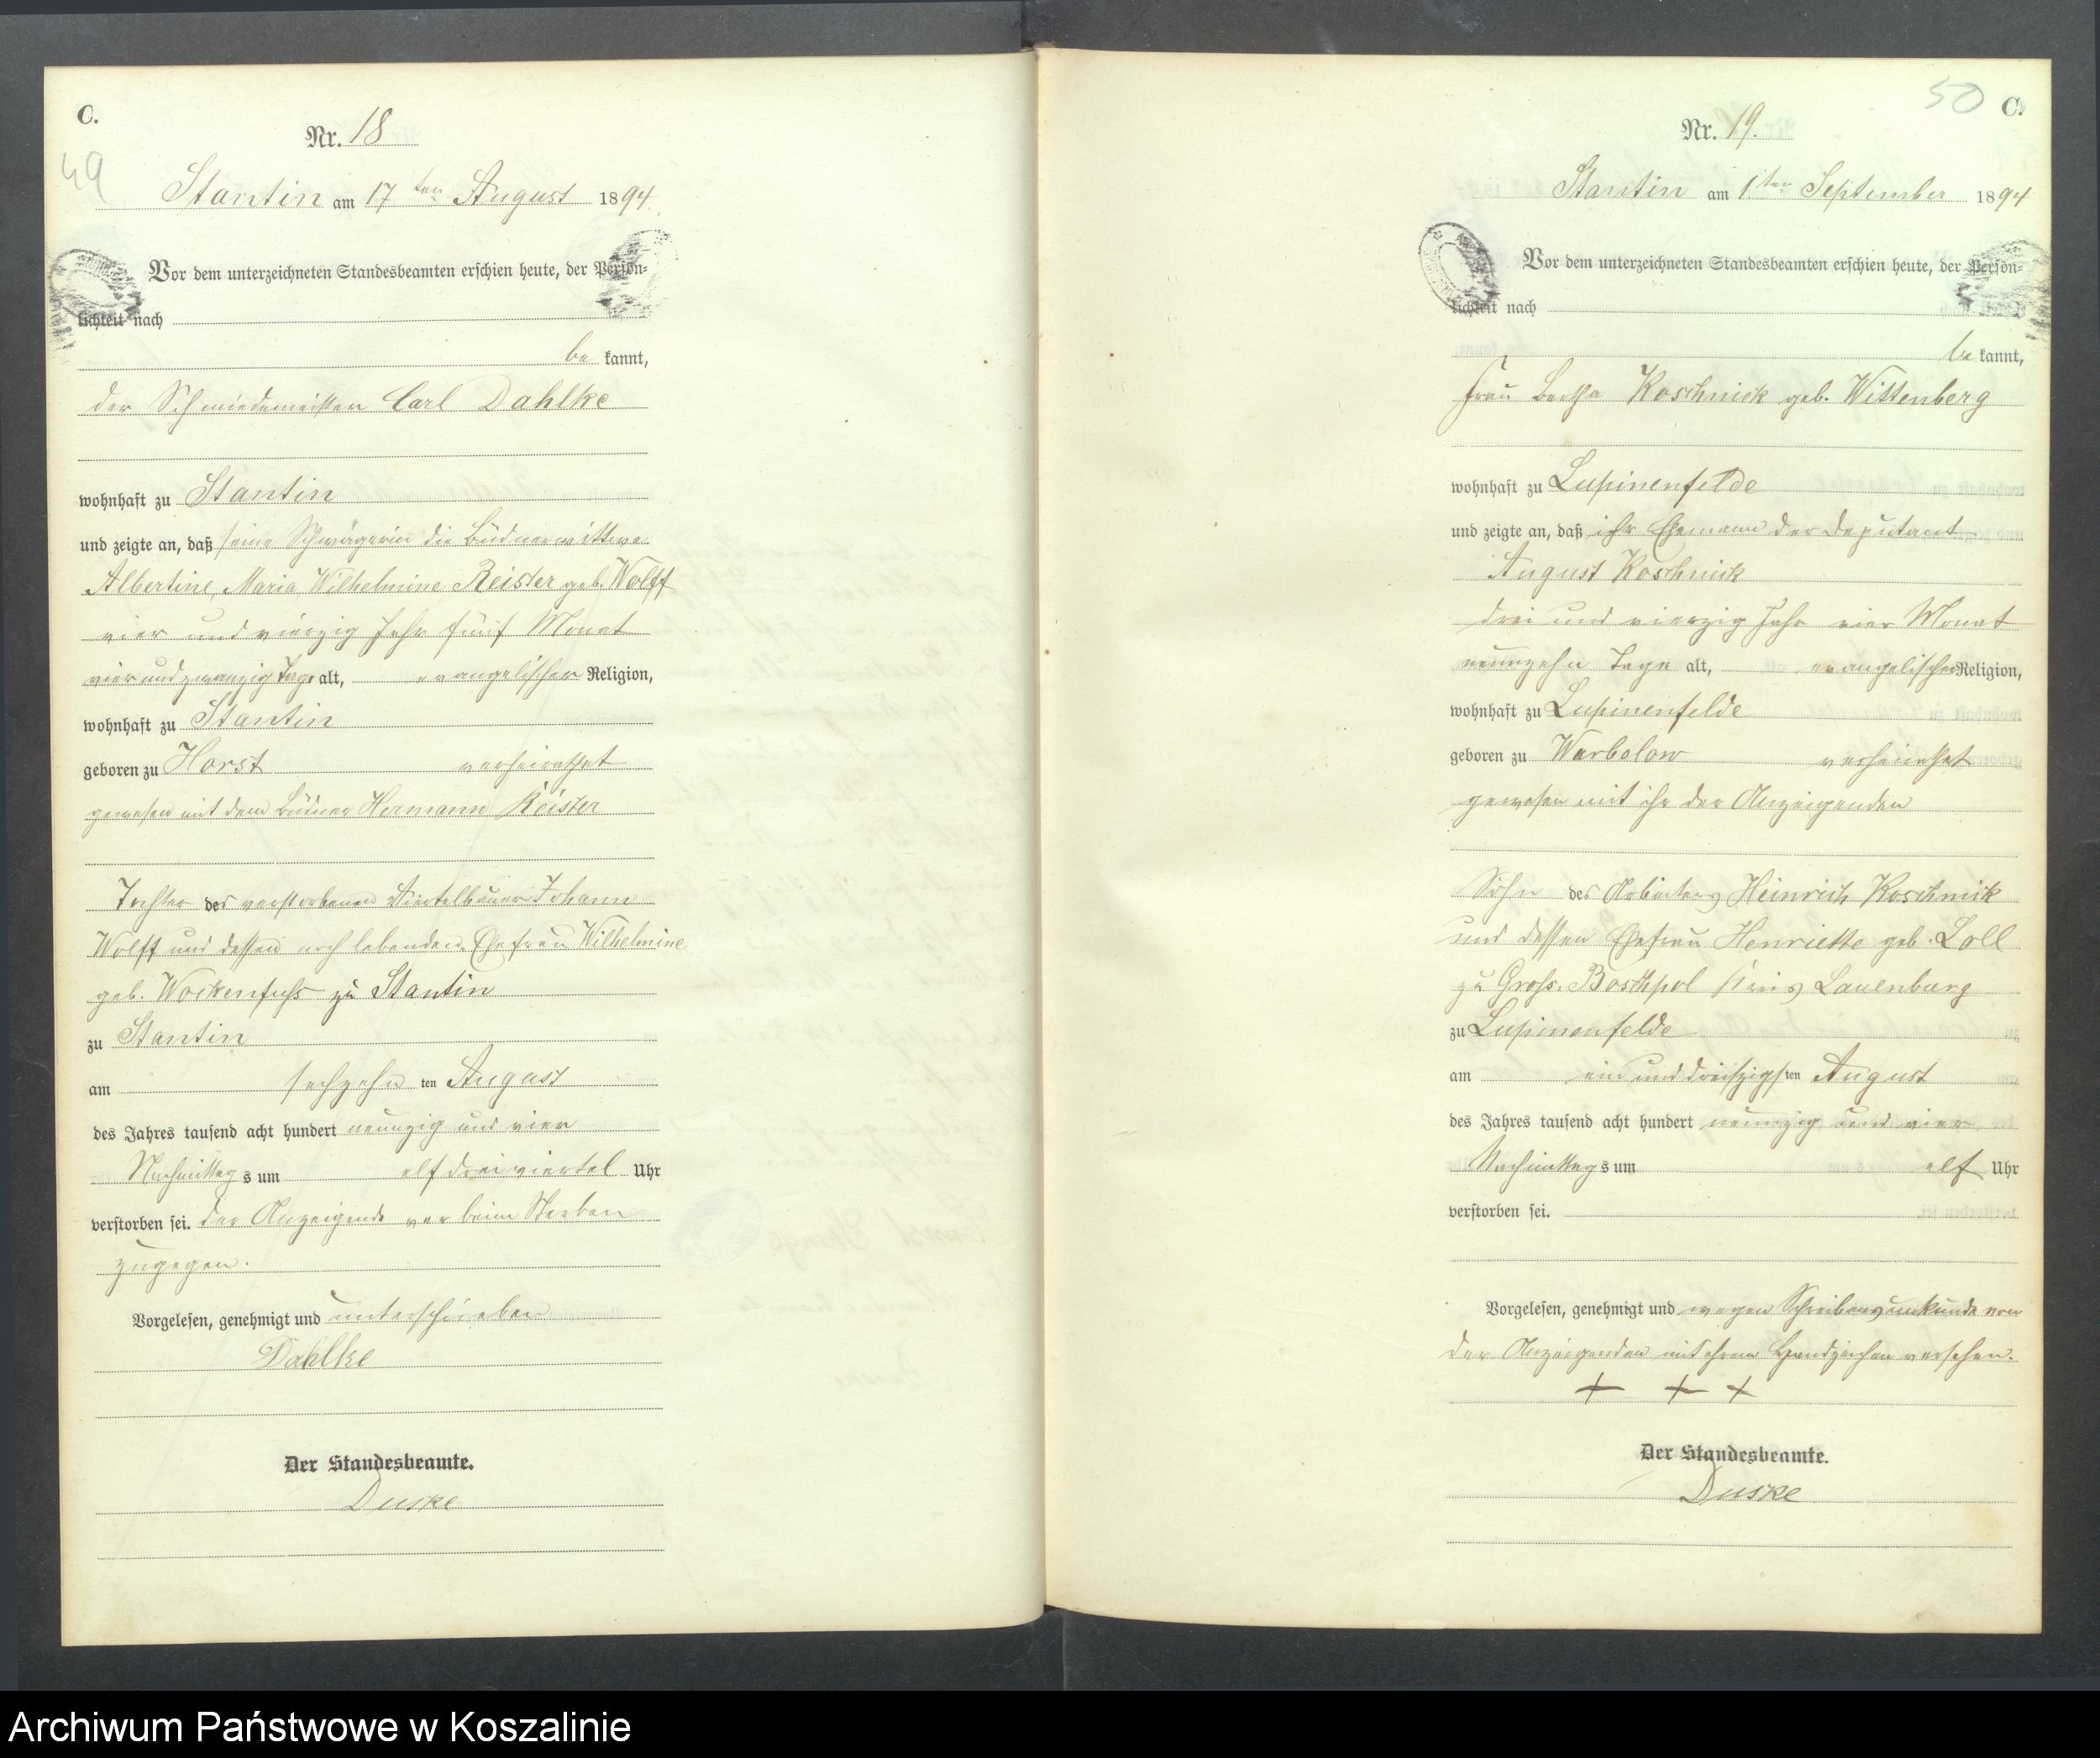 C.
49
Nr. 18
Stantin am 17ten August 1894.
Vor dem unterzeichneten Standesbeamten erschien heute, der Persön-
lichkeit nach
be kannt,
der Schmiedemeister Carl Dahlke
wohnhaft zu Stantin
und zeigte an, daß seine Schwägerin die Büdnerwittwe
Albertine, Maria Wilhelmine Reister geb. Wolff
vier und vierzig Jahr fünf Monat
vier und zwanzig Tage alt, evangelischer Religion,
wohnhaft zu Stantin
geboren zu Horst verheirathet
gewesen mit dem Büdner Hermann Reister
Tochter des verstorbenen Viertelbauer Johann
Wolff und dessen noch lebenden Ehefrau Wilhelmine
geb. Wockenfuhs zu Stantin
zu Stantin
am sechzehn ten August
des Jahres tausend acht hundert neunzig und vier
Nachmittag s um elf dreiviertel Uhr
verstorben sei. der Anzeigende war beim Sterben
zugegen.
Vorgelesen, genehmigt und unterschrieben
Dahlke
Der Standesbeamte.
Duske
50 C.
Nr. 19.
Stantin am 1ten September 1894
Vor dem unterzeichneten Standesbeamten erschien heute, der Persön-
lichkeit nach
be kannt,
Frau Bertha Koschnick geb. Wittenberg
wohnhaft zu Lupinenfelde
und zeigte an, daß ihr Ehemann der Deputant
August Koschnick
drei und vierzig Jahr vier Monat
neunzehn Tage alt, evangelischer Religion,
wohnhaft zu Lupinenfelde
geboren zu Warbelow verheirathet
gewesen mit ihr der Anzeigenden
Sohn des Arbeiters Heinrich Koschnick
und dessen Ehefrau Henriette geb. Loll
zu Groß. Boschpol Kreis Lauenburg
zu Lupinenfelde
am ein und dreißigsten August
des Jahres tausend acht hundert neunzig und vier
Nachmittag s um elf Uhr
verstorben sei.
Vorgelesen, genehmigt und wegen Schreibensunkunde von
der Anzeigenden mit ihrem Handzeichen versehen.
+ + +
Der Standesbeamte.
Duske
Archiwum Państwowe w Koszalinie